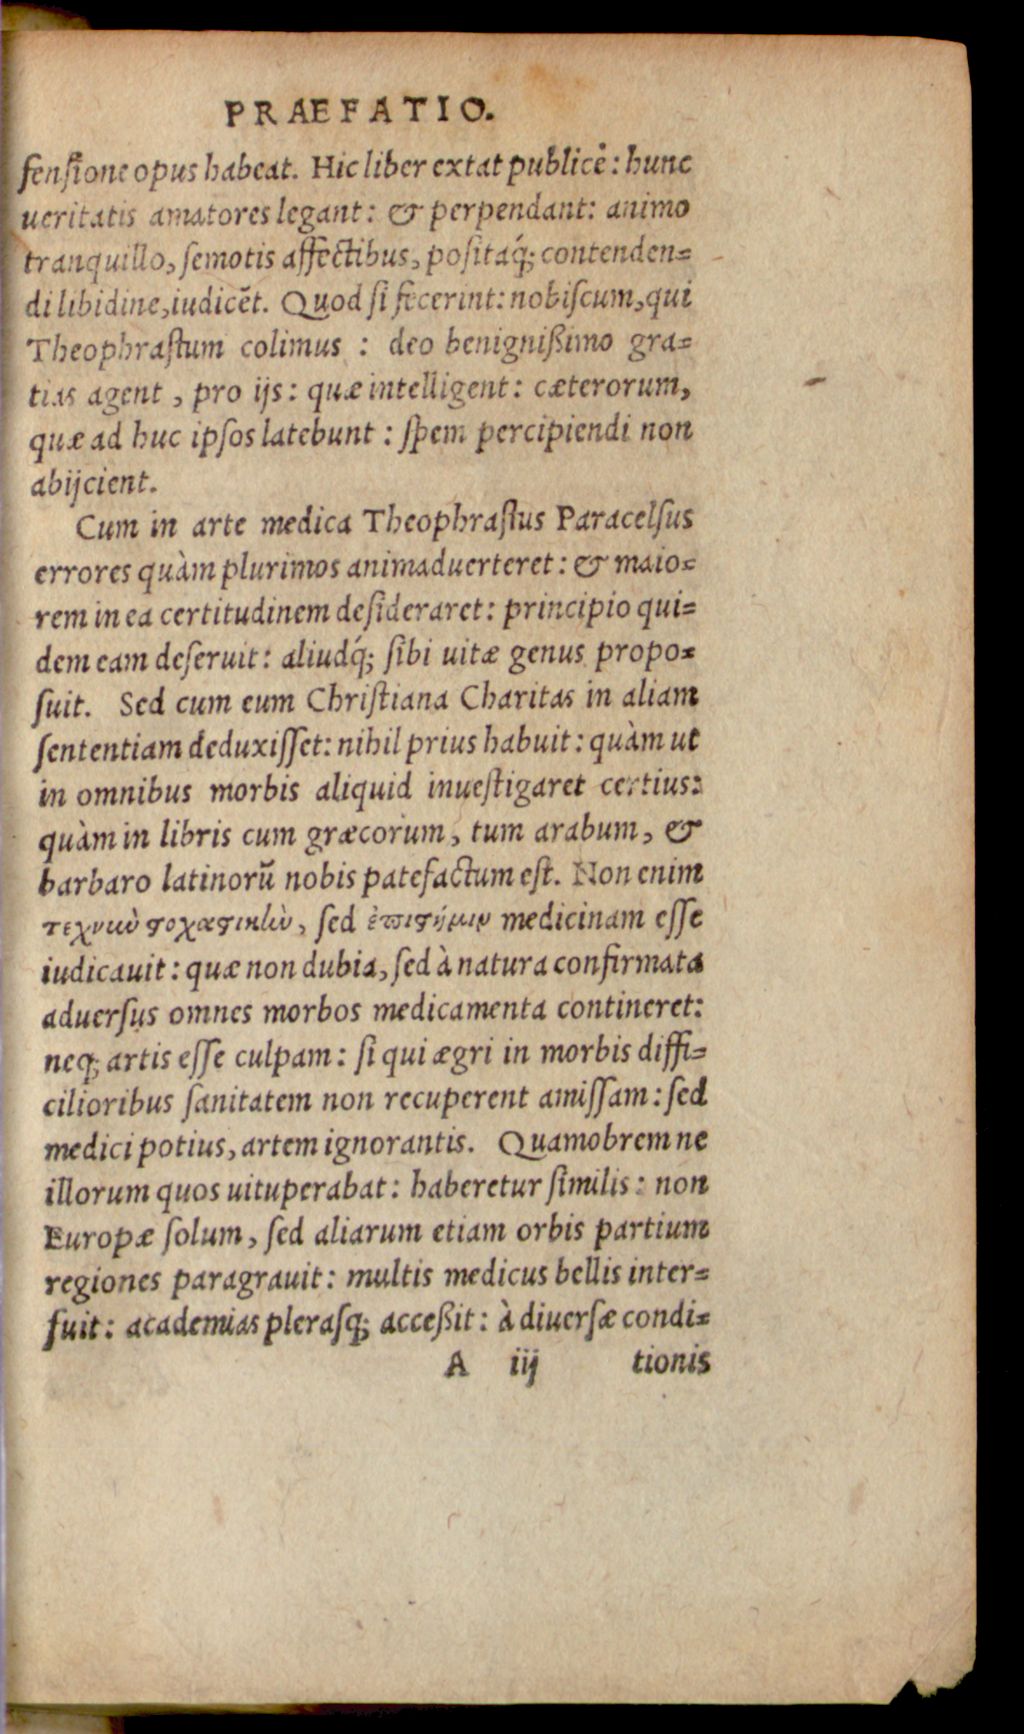 PRAEFATIO.
fenſione opus habeat. Hic liber extat publicè: hunc
ueritatis amatores legant: & perpendant: animo
tranquillo, ſemotis affectibus, poſitaq́; contenden=
di libidine, iudicẽt. Quod ſi fecerint: nobiſcum, qui
Theophraſtum colimus : deo benignißimo gra=
tias agent , pro ijs : quæ intelligent: cæterorum,
quæ ad huc ipſos latebunt : ſpem percipiendi non
abijcient.
Cum in arte medica Theophraſtus Paracelſus
errores quàm plurimos animaduerteret: & maio=
rem in ea certitudinem deſideraret: principio qui=
dem eam deſeruit: aliudq́; ſibi uitæ genus propo=
ſuit. Sed cum eum Chriſtiana Charitas in aliam
ſententiam deduxiſſet: nihil prius habuit: quàm ut
in omnibus morbis aliquid inueſtigaret certius:
quàm in libris cum græcorum, tum arabum, &
barbaro latinorũ nobis patefactum eſt. Non enim
τεχνικὼ ϛοχαϛικὼ, ſed ἐπιϛήμην medicinam eſſe
iudicauit: quæ non dubia, ſed à natura confirmata
aduerſus omnes morbos medicamenta contineret:
neq; artis eſſe culpam: ſi qui ægri in morbis diffi=
cilioribus ſanitatem non recuperent amiſſam: ſed
medici potius, artem ignorantis. Quamobrem ne
illorum quos uituperabat: haberetur ſimilis: non
Europæ ſolum, ſed aliarum etiam orbis partium
regiones paragrauit: multis medicus bellis inter=
fuit: academias pleraſq; acceßit: à diuerſæ condi=
A iij tionis